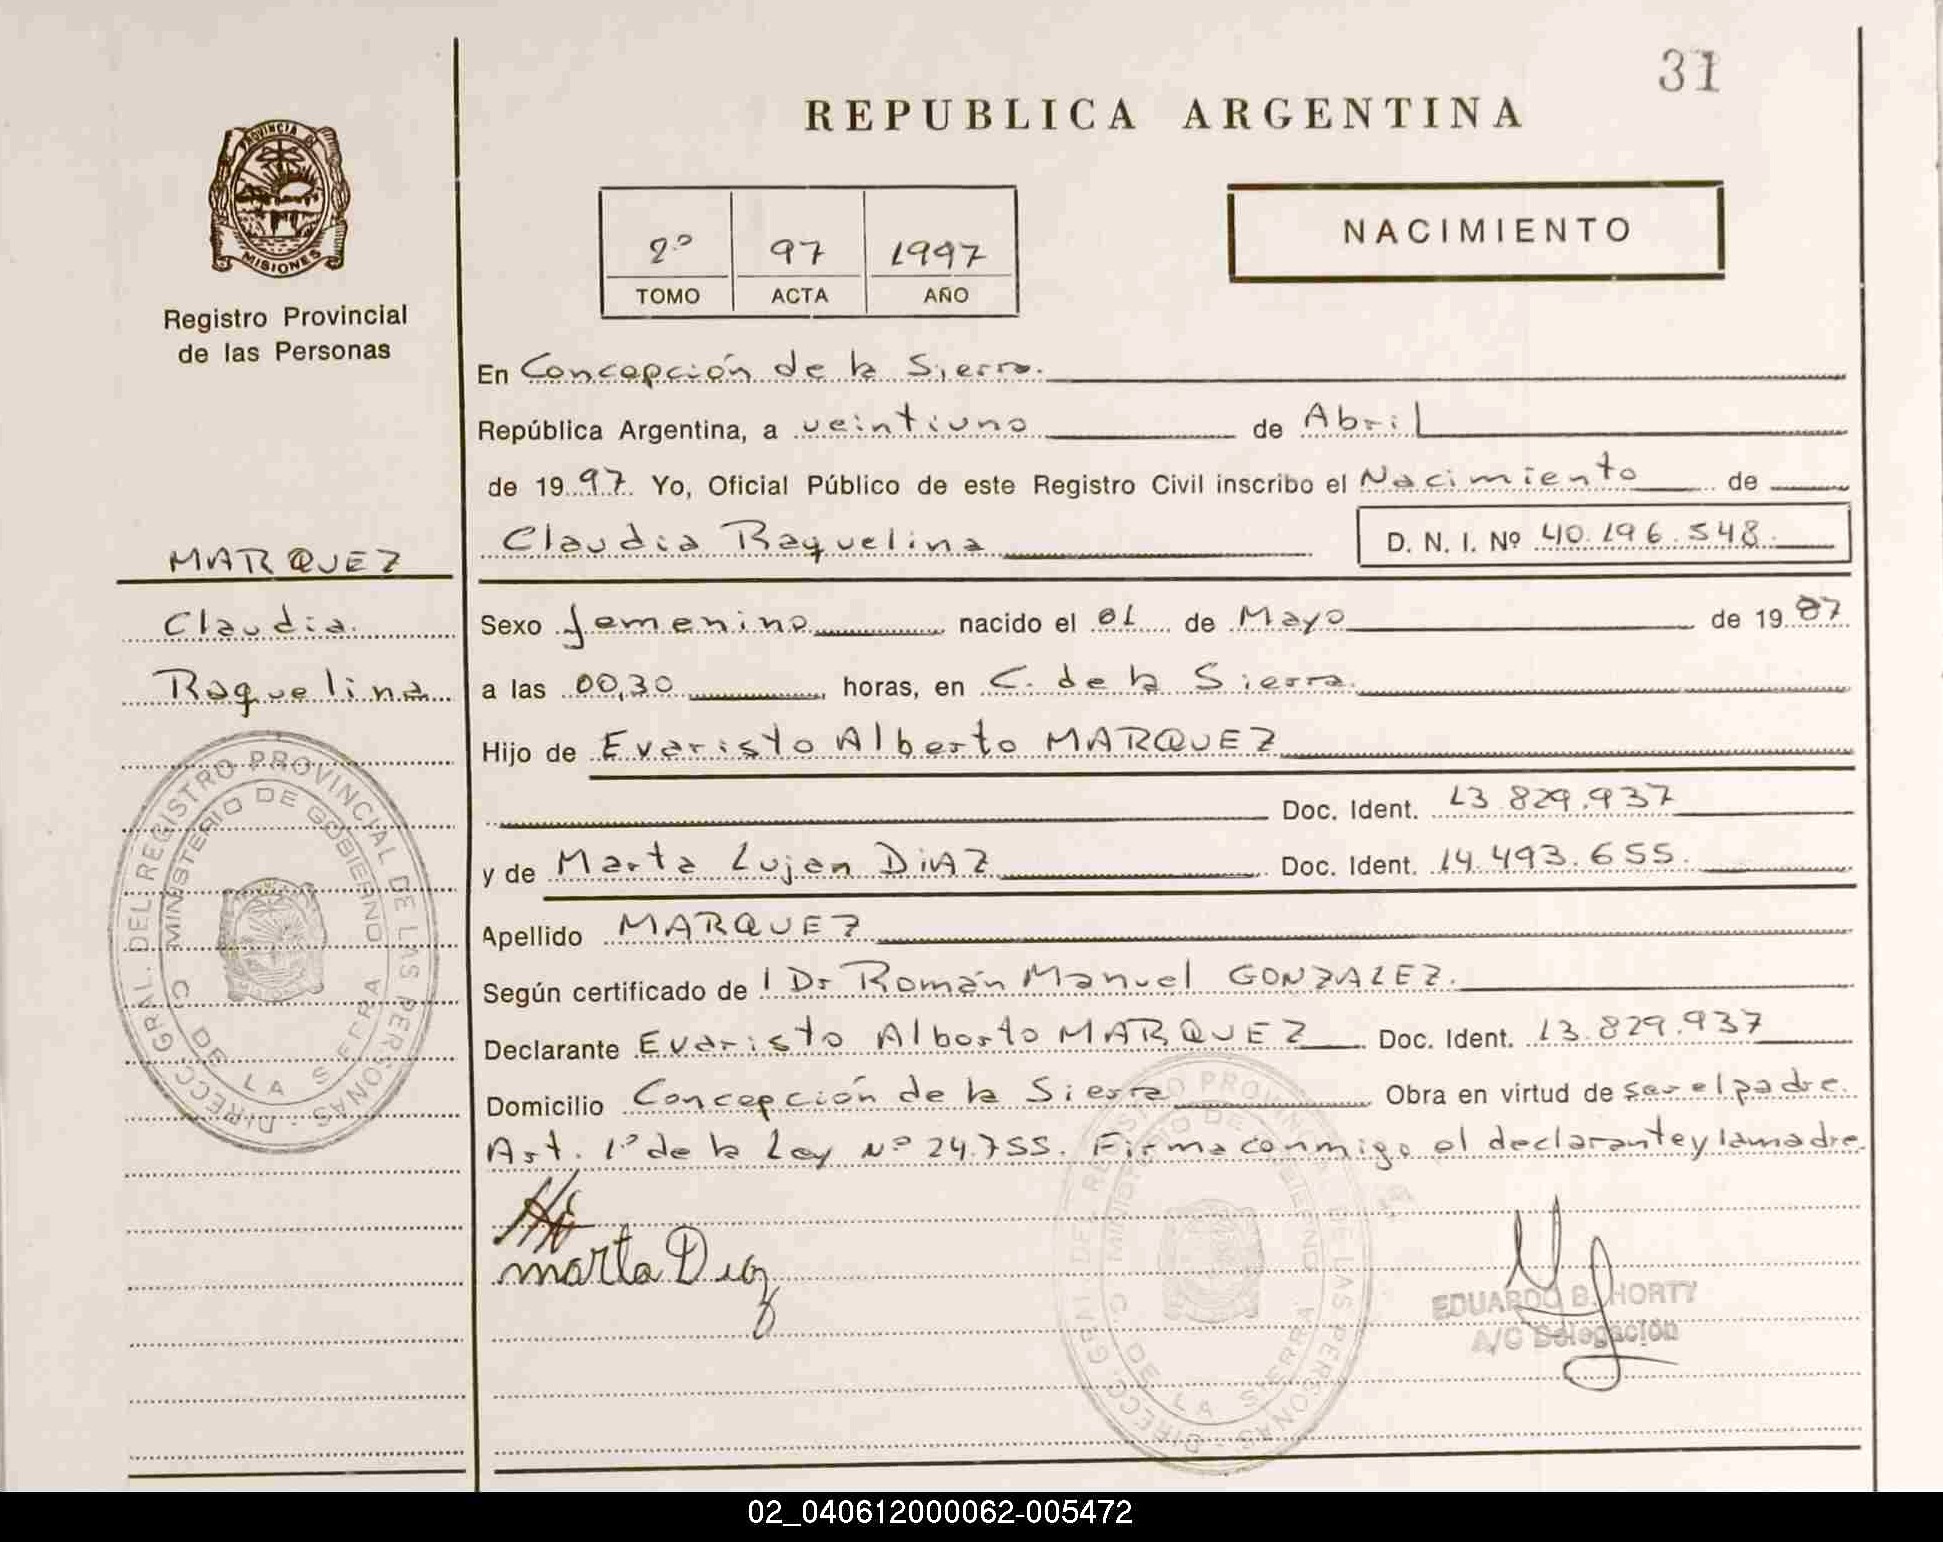 31
REPUBLICA ARGENTINA
PROVINCIA DE
MISIONES
Registro Provincial
de las Personas
2º 97 1997
TOMO ACTA AÑO
NACIMIENTO
En Concepción de la Sierra.
República Argentina, a veintiuno de Abril
de 1997. Yo, Oficial Público de este Registro Civil inscribo el Nacimiento de
Claudia Raquelina D. N. I. Nº 40.196.548.
MARQUEZ
Claudia
Raquelina
Sexo femenino nacido el 01 de Mayo de 1987
a las 00,30 horas, en C. de la Sierra.
Hijo de Evaristo Alberto MARQUEZ
Doc. Ident. 13.829.937
y de Marta Lujan DiAZ Doc. Ident. 14.493.655.
Apellido MARQUEZ
Según certificado de l Dr Román Manuel GONZALEZ.
Declarante Evaristo Alberto MARQUEZ Doc. Ident. 13.829.937
Domicilio Concepción de la Sierra Obra en virtud de ser el padre.
Art. 1º de la Ley Nº 24.755. Firma conmigo el declarante y la madre.
marta Diaz
EDUARDO B. HORTY
A/C Delegación
DIRECC. GRAL. DEL REGISTRO PROVINCIAL DE LAS PERSONAS
MINISTERIO DE GOBIERNO
C. DE LA SIERRA
DIRECC. GRAL. DEL REGISTRO PROVINCIAL DE LAS PERSONAS
MINISTERIO DE GOBIERNO
C. DE LA SIERRA
02_040612000062-005472